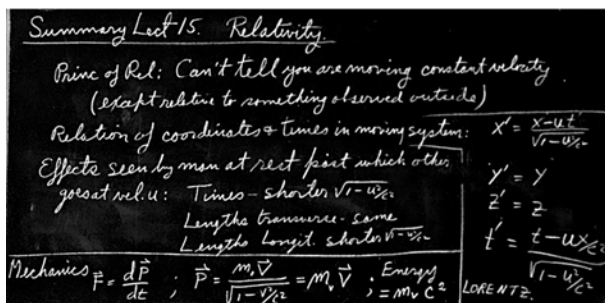 Summary Lect 15. Relativity.
Princ of Rel: Can't tell you are moving constant velocity
(except relative to something observed outside)
Relation of coordinates & times in moving system:
x' = (x-ut)/√(1-u²/c²)
y' = y
z' = z
t' = (t-ux/c²)/√(1-u²/c²)
LORENTZ.
Effects seen by man at rest past which other
goes at vel. u: Times - shorter √(1-u²/c²)
Lengths transverse - same
Lengths Longit. shorter √(1-u²/c²)
Mechanics F⃗ = dP⃗/dt ; P⃗ = m₀V⃗/√(1-v²/c²) = mᵥV⃗ ; Energy = mᵥc²